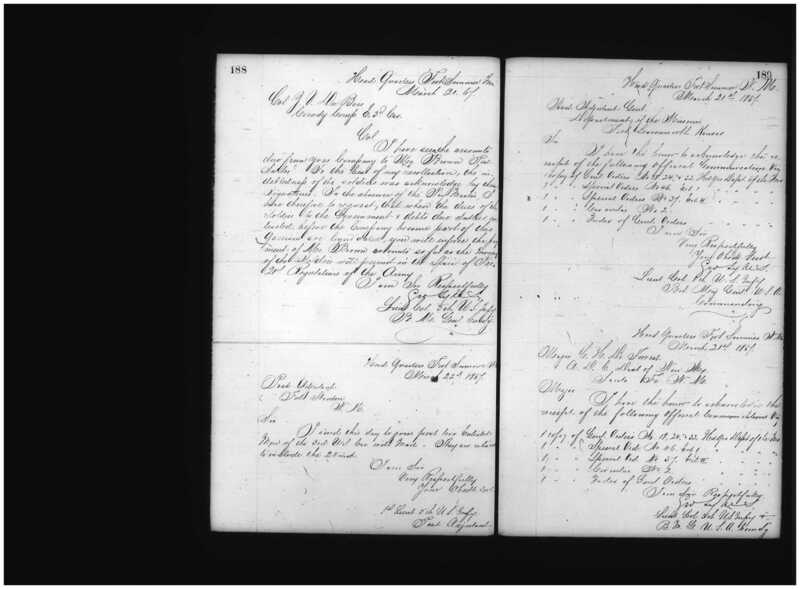 188
Head Quarters Fort Sumner N.M.
March 20. 67
Col J. N. Du Bois
Comdg Comp E 3d Cav.
Col
I have seen the accounts
due from your Company to Mr Brown Post
Sutler. To the best of my recollection, the in
debtedness of the soldiers was acknowledged by their
signatures. In the absence of Mr Brown I
have therefore to request, that when the dues of the
soldier to the Government & debts due
before the Company become part of any
Garrison are liquidated, you will enforce the pay
ment of Mr Brown accounts so far as the
of the will permit in the spirit of
Regulations of the Army
I am Sir Respectfully
Geo
Lieut Col 5th U.S. Infty
Bt M. Genl Comdg
Head Quarters Fort Sumner N.M.
March 22d 1867.
Post Adjutant
Fort Stanton
N. M.
Sir
I send this day to your post two Enlisted
Men of the 3rd U.S. Cav with Mail. They are
to include the 22 ind.
I am Sir
Very Respectfully
Your Obedt Svt
1st Lieut 5th U.S. Infty
Post Adjutant
189
Head Quarters Fort Sumner N. M.
March 21st 1867.
Asst Adjutant Genl.
Department of the Missouri
Fort Leavenworth Kansas
Sir
I have the honor to acknowledge the re
ceipt of the following Official Communications Viz
1 Copy of Genl Orders No 18, 20, & 22 Hdqrs Dept of the Mo
1 " " Special Orders No 46
1 " " Special Orders No 37.
1 " " Circular No 2.
1 " " Index of Genl Orders
I am Sir
Very Respectfully
Your Obedt Servt
Geo
Lieut Col 5th U.S. Infty
Bvt Maj Genl U.S.A.
Commanding
Head Quarters Fort Sumner N.M.
March 21st 1867.
Major C. H. De Forrest
A. D. C. Dist of New Mex
Santa Fe N. M.
Major
I have the honor to acknowledge the
receipt of the following Official Communications Viz
1 Copy of Genl Orders No 18, 20, & 22 Hdqrs Dept of the Mo
1 " " Special Ord No 46
1 " " Special Ord No 37.
1 " " Circular No 2
1 " " Index of Genl Orders
I am Sir Respectfully
Geo
Lieut Col 5th U.S. Infty &
B. M. G. U.S.A. Comdg